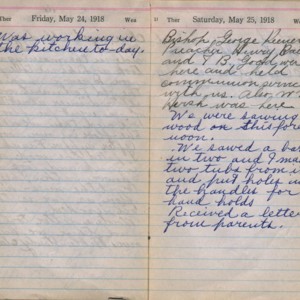 Friday, May 24, 1918
Was working in
the kitchen to-day.
Saturday, May 25, 1918
Bishop George
Preacher Henry
and I B Good were
here and held
communion
with us. Also M
was here
We were sawing
wood on this fore
noon.
We sawed a bar
in two and I ma
two tubs from i
and put holes in
the handles for
hand holds
Received a lette
from parents.